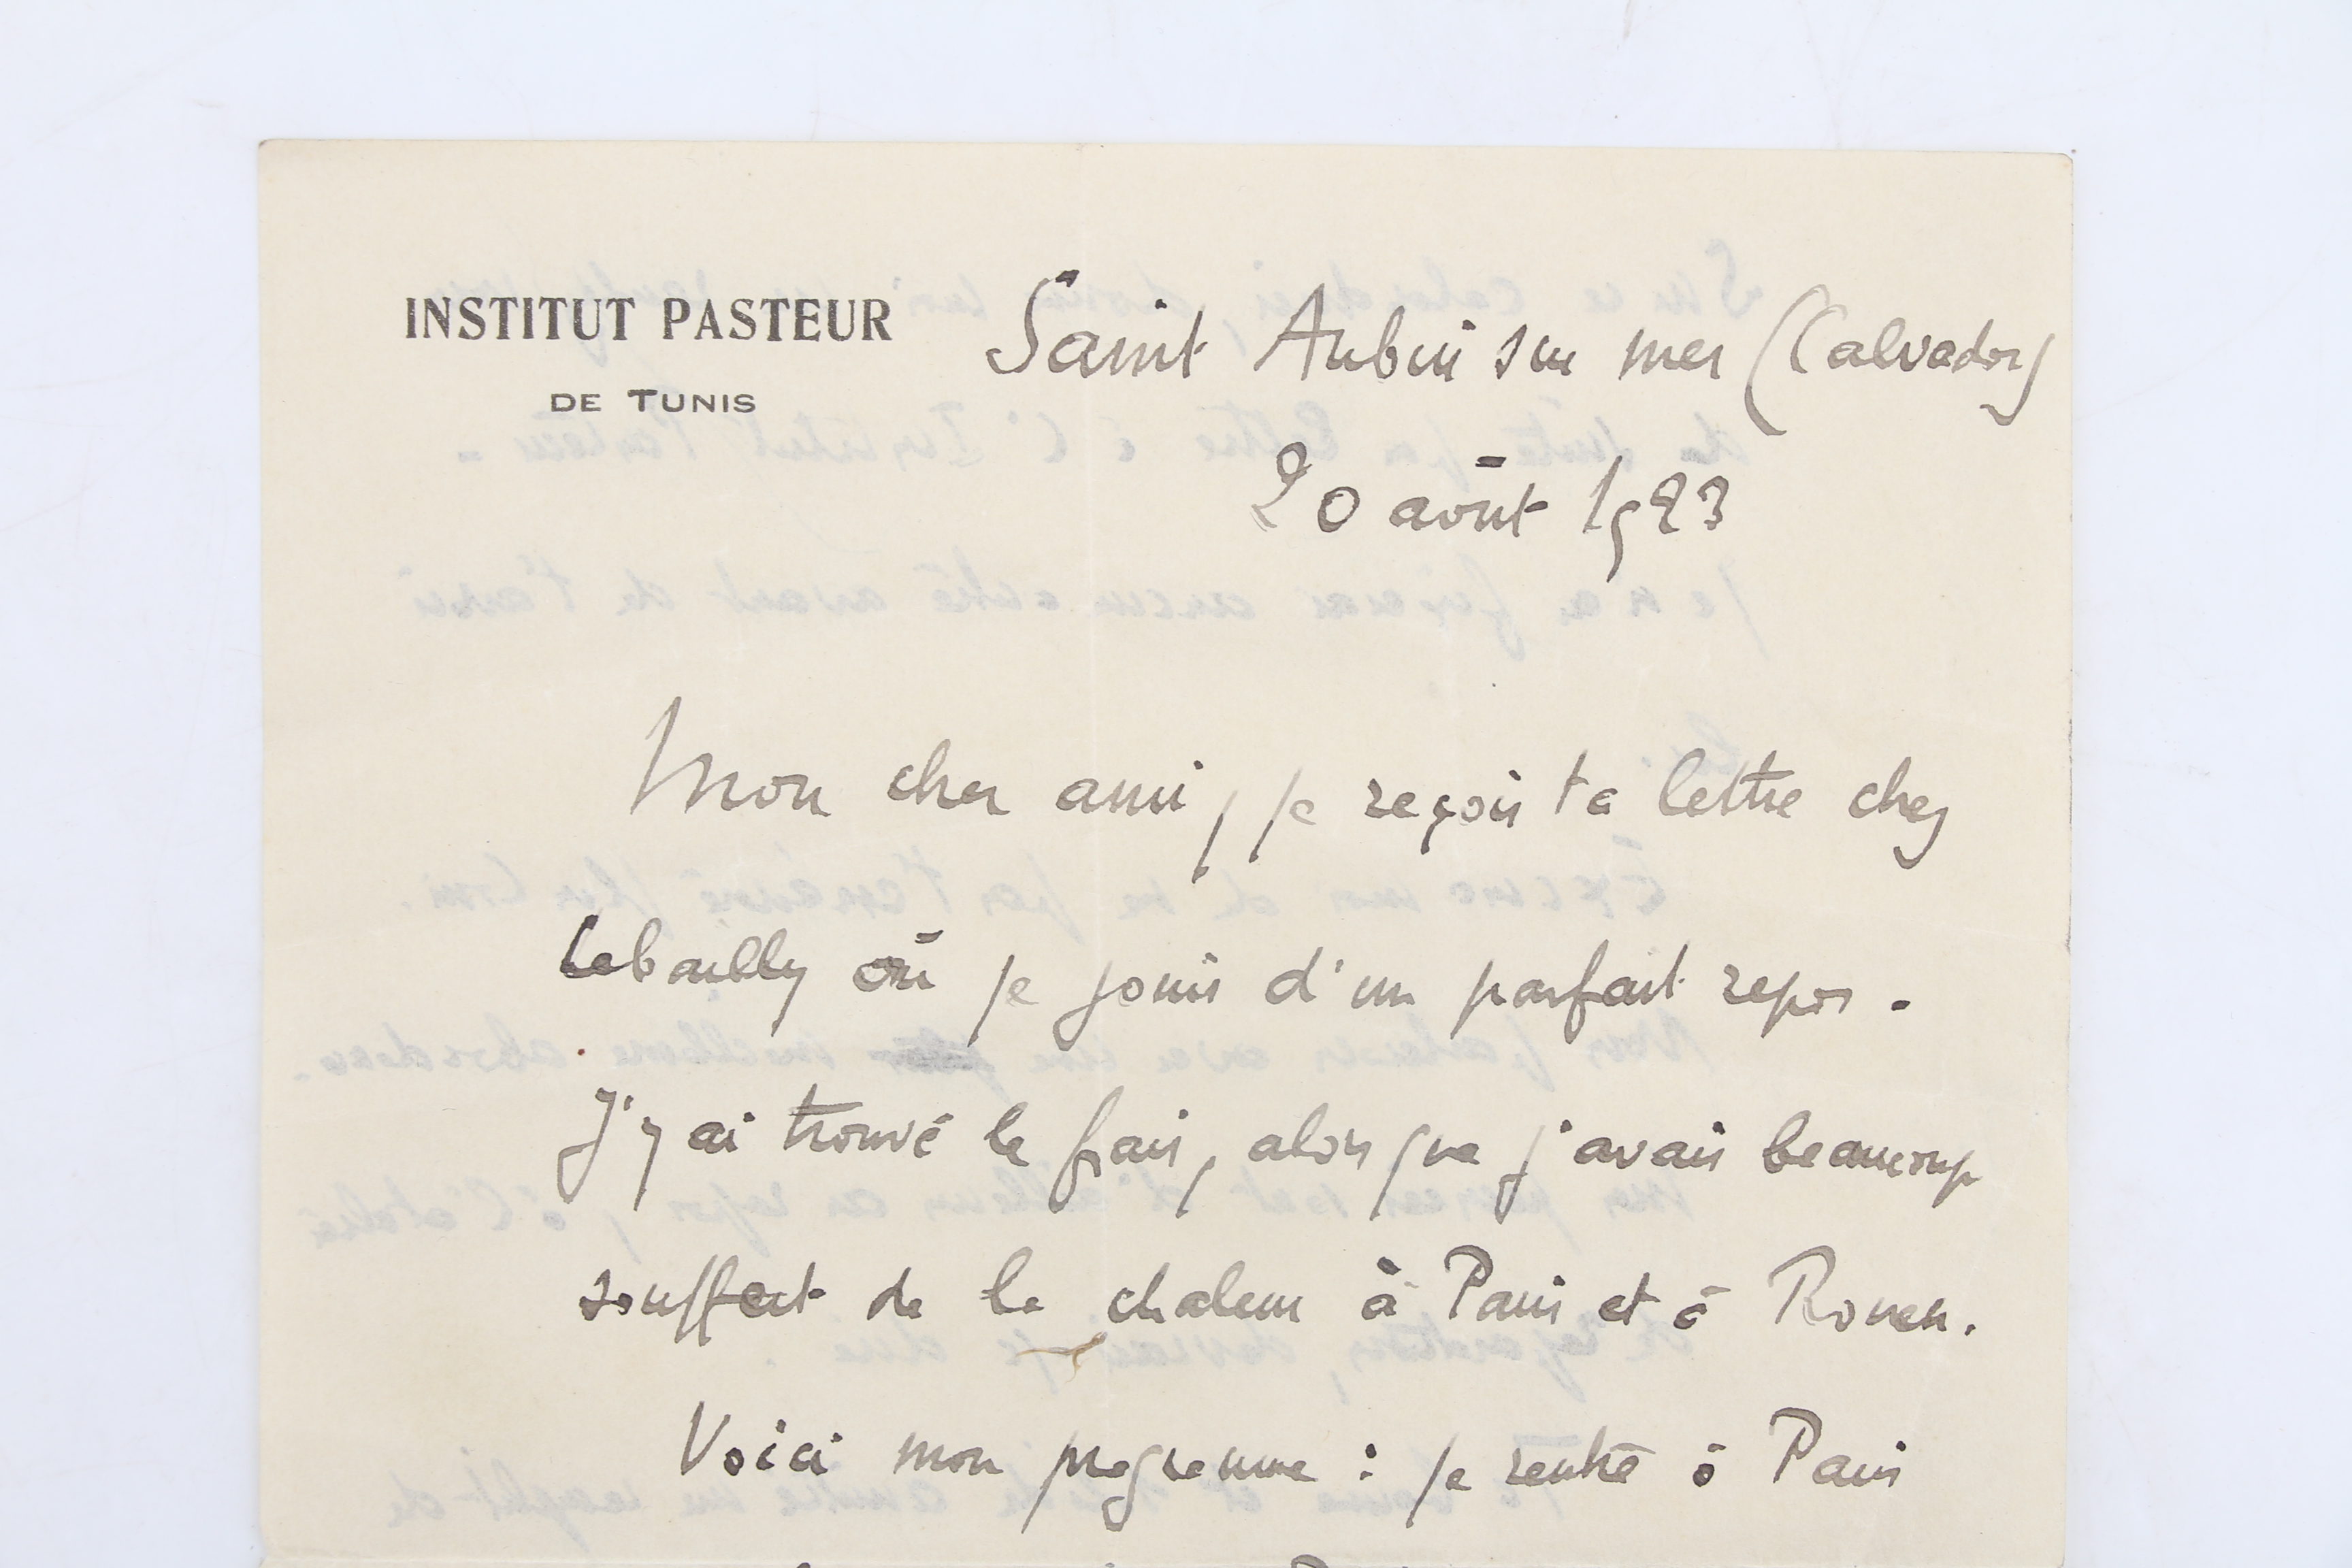 INSTITUT PASTEUR
DE TUNIS
Saint Aubin sur mer (Calvados)
20 août 1923
Mon cher ami, je reçois ta lettre chez
Lebailly où je jouis d'un parfait repos.
J'y ai trouvé le frais, alors que j'avais beaucoup
souffert de la chaleur à Paris et à Rouen.
Voici mon programme : je rentre à Paris